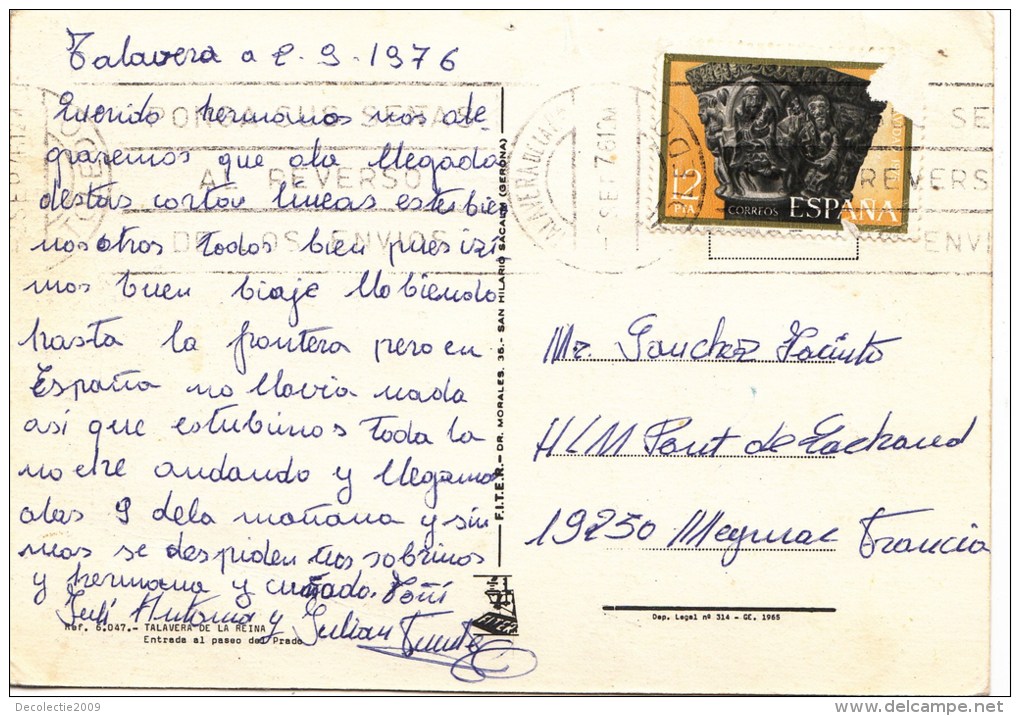 Talavera a 2-9-1976
Querido hermanos nos ale-
graremos que ala llegada
destas cortas lineas esteis bie
nosotros todos bien pues izi
mos buen biaje llobiendo
hasta la frontera pero en
España no llovia nada
asi que estubimos toda la
noche andando y llegamos
alas 9 dela mañana y sin
mas se despiden tus sobrinos
y hermana y cuñado. Toñi
Juli Antonia y Julian Fuente
Ref. 6.047.- TALAVERA DE LA REINA
Entrada al paseo del Prado
F.I.T.E.R.- DR. MORALES, 36.- SAN HILARIO SACALM (GERONA)
PONGA SUS SEÑAS
AL REVERSO
DE LOS ENVIOS
TALAVERA DE LA
SEP 76
TOLEDO
12
PTA
CORREOS ESPAÑA
SE
REVERS
ENVI
Mr. Sanchez Jacinto
HLM Pont de Lachaud
19250 Meymac Francia
Dep. Legal nº 314 - GE. 1965
Decolectie2009